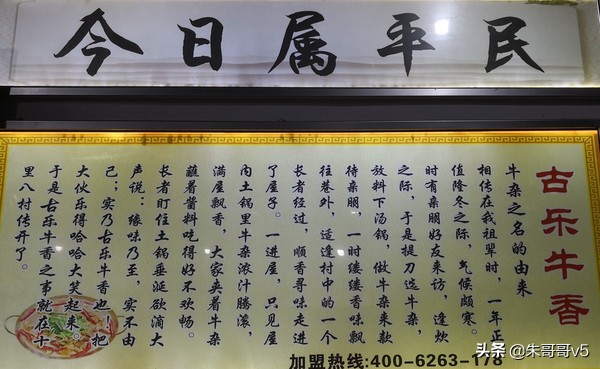 今日属平民
古乐牛香
牛杂之名的由来
相传在我祖辈时，一年正
值隆冬之际，气候颇寒。
时有亲朋好友来访，逢炊
之际，于是提刀选牛杂，
放料下汤锅，做牛杂来款
待亲朋，一时缕缕香味飘
往巷外，适逢村中的一个
长者经过，顺香寻味走进
了屋子。一进屋，只见屋
内土锅里牛杂浓汁腾滚，
满屋飘香，大家夹着牛杂
蘸着酱料吃得好不欢畅。
长者盯住土锅垂涎欲滴大
声说：臻味乃至，实不由
己；实乃古乐牛香也！把
大伙乐得哈哈大笑起来。
于是古乐牛香之事就在十
里八村传开了。
加盟热线:400-6263-178
头条 @朱哥哥v5